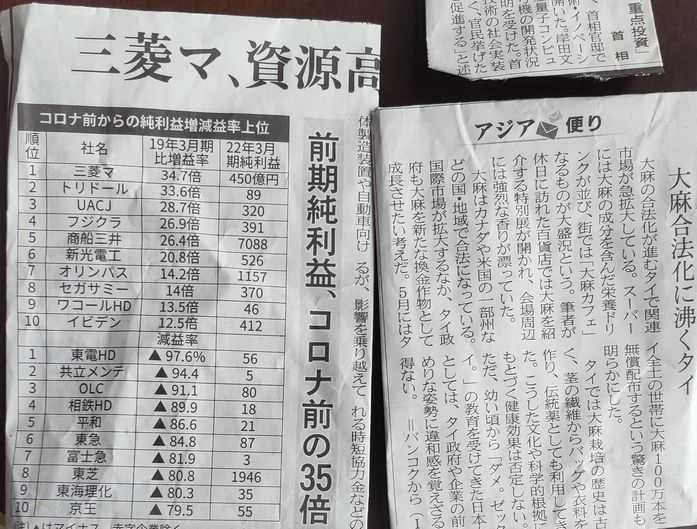 三菱マ、資源高
前期純利益、コロナ前の35倍
コロナ前からの純利益増減益率上位
順位 社名 19年3月期比増益率 22年3月期純利益
1 三菱マ 34.7倍 450億円
2 トリドール 33.6倍 89
3 UACJ 28.7倍 320
4 フジクラ 26.9倍 391
5 商船三井 26.4倍 7088
6 新光電工 20.8倍 526
7 オリンパス 14.2倍 1157
8 セガサミー 14倍 370
9 ワコールHD 13.5倍 46
10 イビデン 12.5倍 412
減益率
1 東電HD ▲97.6% 56
2 共立メンテ ▲94.4 5
3 OLC ▲91.1 80
4 相鉄HD ▲89.9 18
5 平和 ▲86.6 21
6 東急 ▲84.8 87
7 富士急 ▲81.9 3
8 東芝 ▲80.8 1946
9 東海理化 ▲80.3 35
10 京王 ▲79.5 55
体製造装置や自動車向け
るが、影響を乗り越えて
れる時短協力金などの
重点投資
首相
、首相官邸で
術・イノベーシ
開いた。岸田文
量子コンピュ
機の開発状況
明を受けた。首
術の社会実装
く、官民挙げた
促進する」と述
アジア便り
大麻合法化に沸くタイ
大麻の合法化が進むタイで関連
市場が急拡大している。スーパー
には大麻の成分を含んだ栄養ドリ
ンクが並び、街では「大麻カフェ」
なるものが大盛況という。筆者が
休日に訪れた百貨店では大麻を紹
介する特別展が開かれ、会場周辺
には強烈な香りが漂っていた。
大麻はカナダや米国の一部州な
どの国・地域で合法になっている。
国際市場が拡大するなか、タイ政
府も大麻を新たな換金作物として
成長させたい考えだ。5月にはタ
イ全土の世帯に大麻100万本を
無償配布するという驚きの計画も
明らかにした。
タイでは大麻栽培の歴史は
く、茎の繊維からバッグや衣料を
作り、伝統薬としても利用してき
た。こうした文化や科学的根拠
もとづく健康効果は否定しない。
ただ、幼い頃から「ダメ。ゼッ
イ。」の教育を受けてきた日本
としては、タイ政府や企業の前
めりな姿勢に違和感を覚えざる
得ない。 =バンコクから